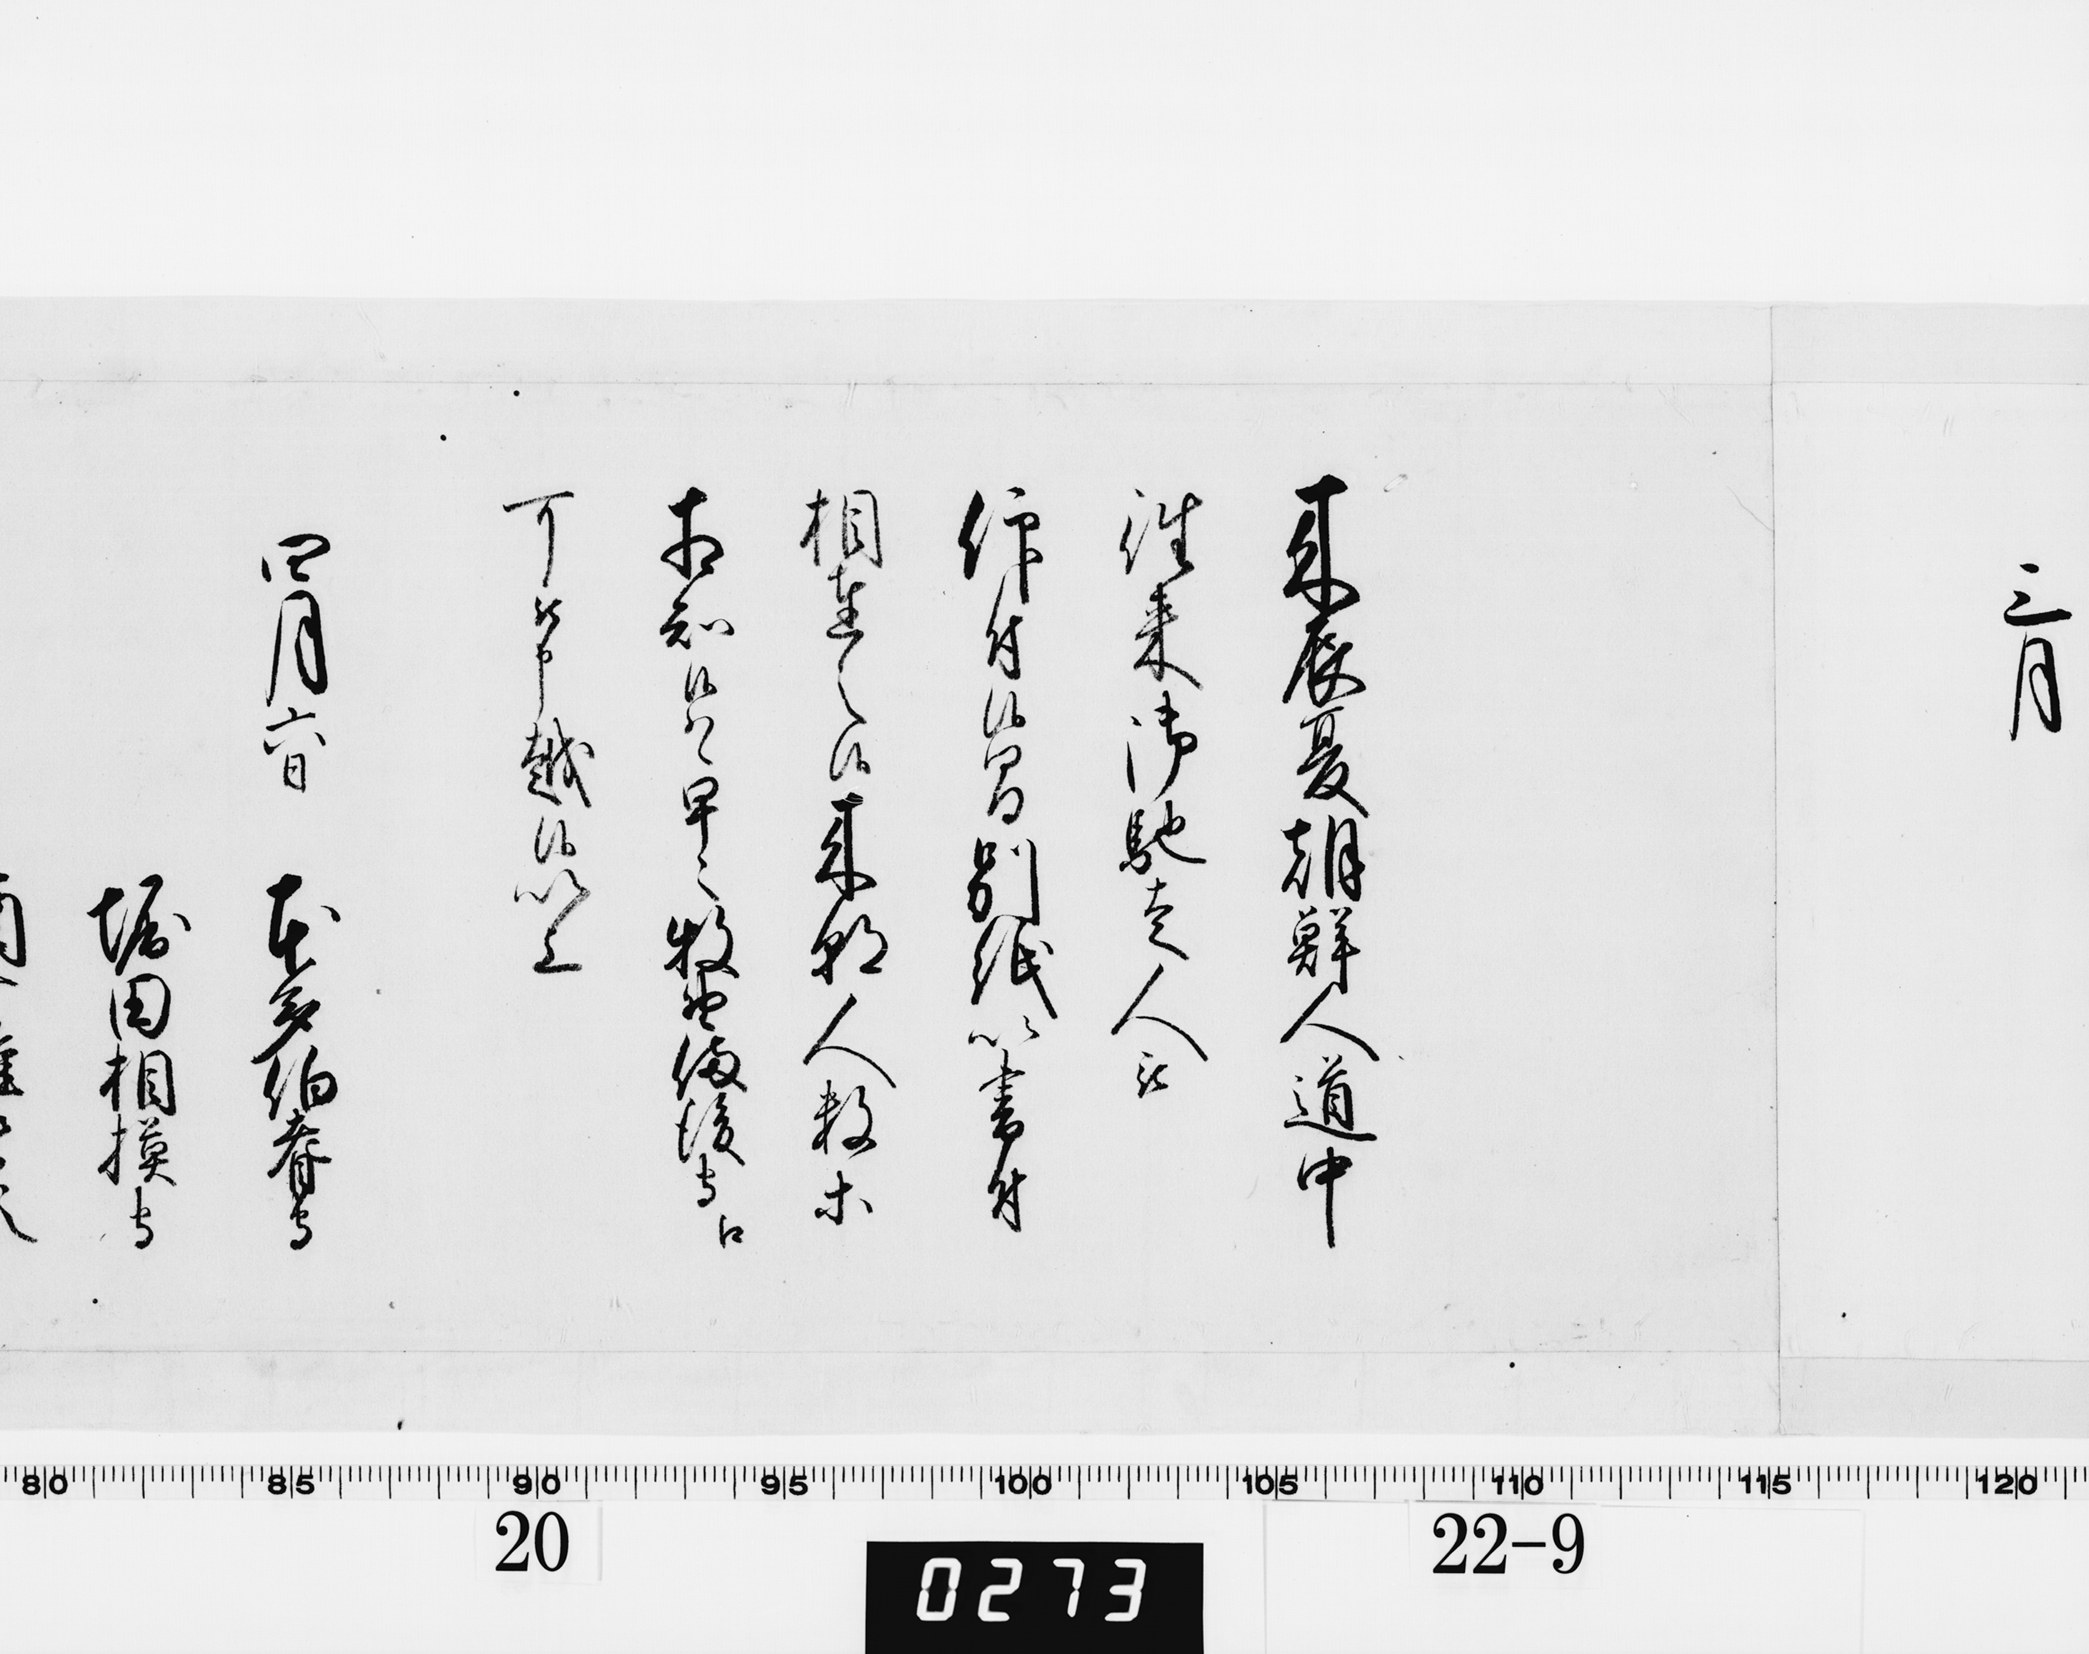 三月
来辰夏朝鮮人道中
往来御馳走人被
仰付候皆可別紙以書付
相達之候来朝人数等
相知候ハヽ早々牧野備後守江
可被申越候以上
四月六日
本多伯耆守
堀田相模守
酒井雅楽頭
80 85 90 95 100 105 110 115 120
20
22-9
0273